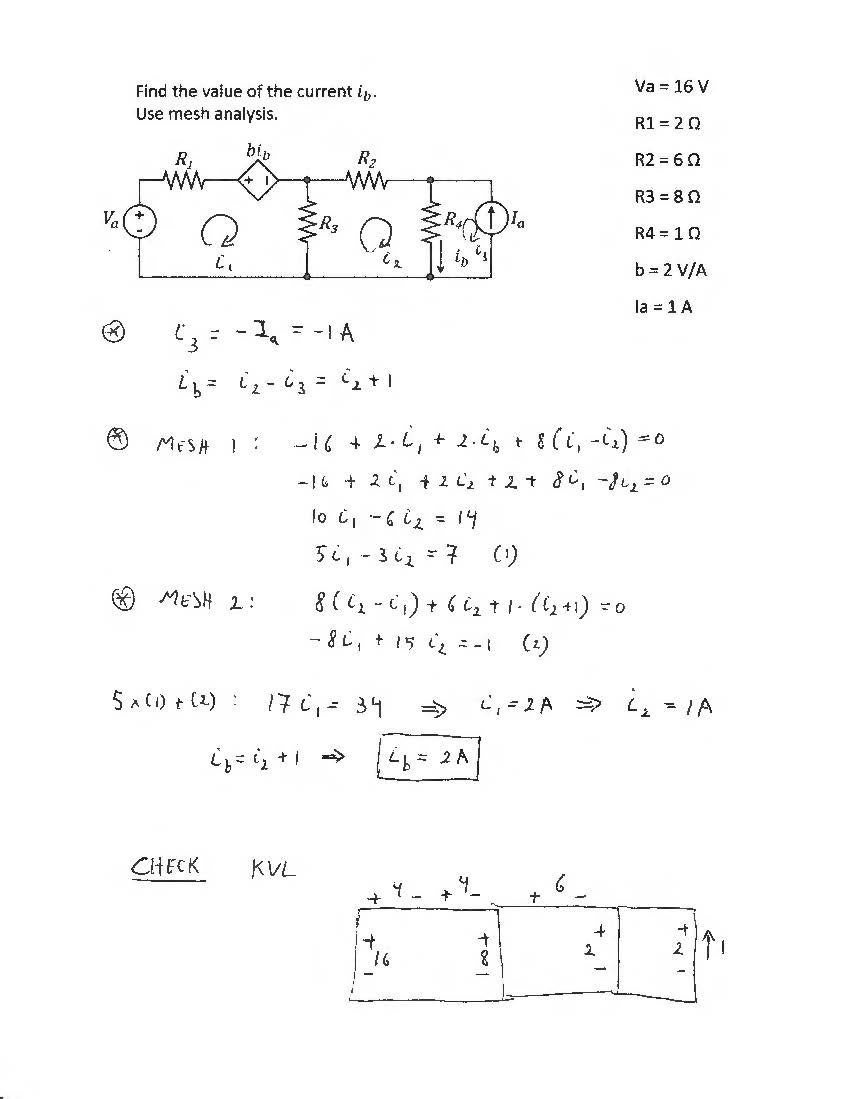 Find the value of the current i_b.
Use mesh analysis.
Va = 16 V
R1 = 2 Ω
R2 = 6 Ω
R3 = 8 Ω
R4 = 1 Ω
b = 2 V/A
Ia = 1 A
R₁ bi_b R₂
+ -
V_a + - R₃ R₄ I_a
i₁ i₂ i_b i₃
⊛ i₃ = - I_a = -1 A
i_b = i₂ - i₃ = i₂ + 1
⊛ MESH 1 : -16 + 2·i₁ + 2·i_b + 8(i₁ - i₂) = 0
-16 + 2i₁ + 2i₂ + 2 + 8i₁ - 8i₂ = 0
10 i₁ - 6 i₂ = 14
5i₁ - 3i₂ = 7 (1)
⊛ MESH 2 : 8(i₂ - i₁) + 6i₂ + 1·(i₂+1) = 0
-8i₁ + 15 i₂ = -1 (2)
5×(1) + (2) : 17 i₁ = 34 ⇒ i₁ = 2A ⇒ i₂ = 1A
i_b = i₂ + 1 ⇒ i_b = 2A
CHECK KVL
+ 4 - + 4 - + 6 -
+ + + +
16 8 2 2 ↑ 1
- - - -